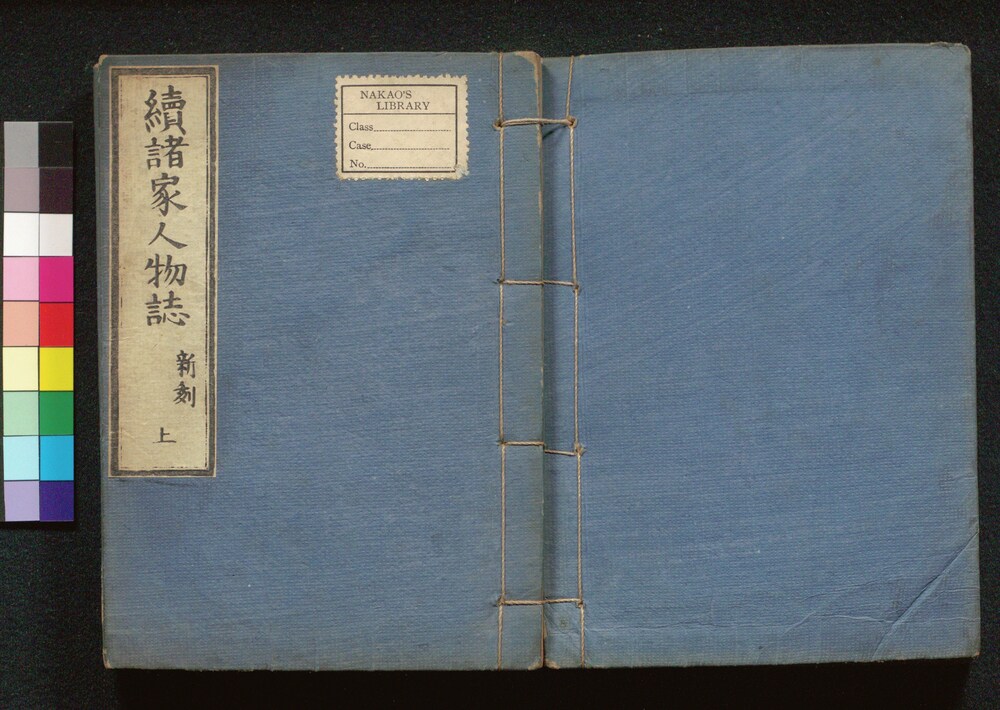 續諸家人物誌
新刻
上
NAKAO'S
LIBRARY
Class
Case
No.